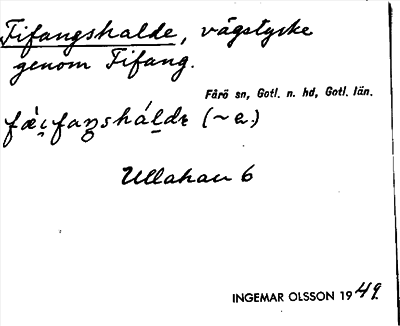 Fifangshalde, vägstycke
genom Fifang.
Fårö sn, Gotl. n. hd, Gotl. län.
fæ̀i̯faŋshálde (~a)
Ullahau 6
INGEMAR OLSSON 1949.